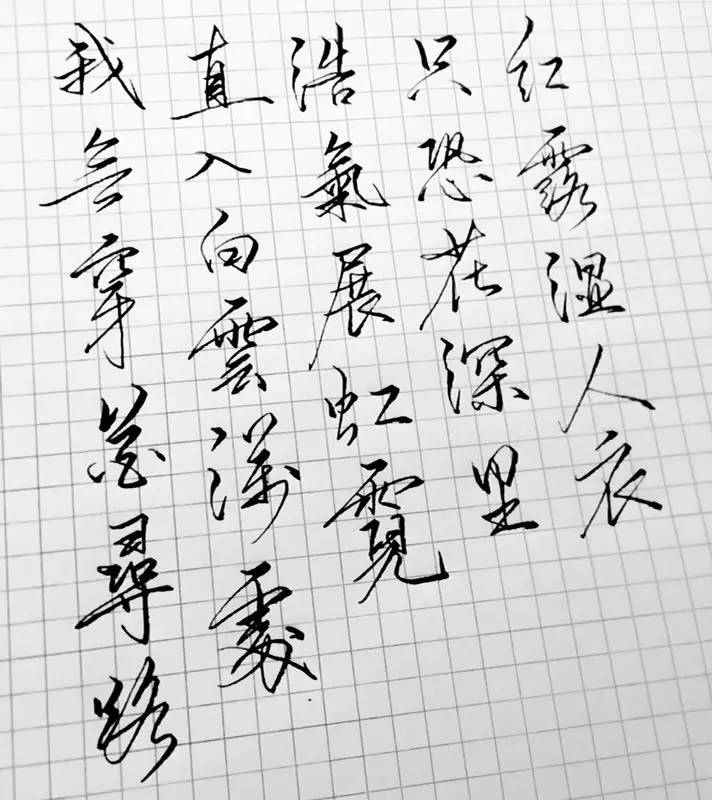 我無穿尋路
直入白雲深處
浩氣展虹霓
只恐花深里
红露湿人衣